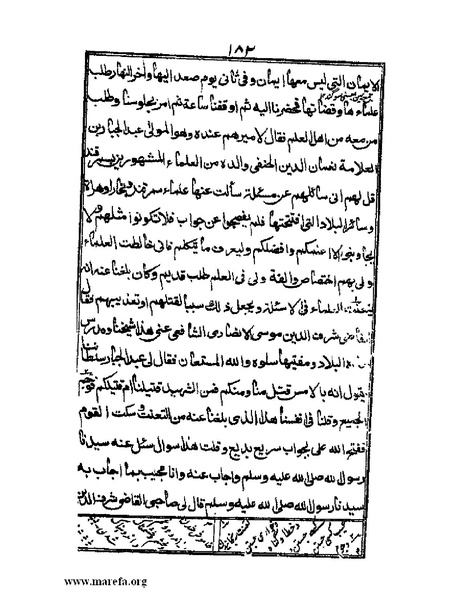 ١٨٢
الايمان التي ليس معها ايمان وفي ثاني يوم صعد اليها واخر النهار طلب
علماءها وقضاتها فحضرنا اليه ثم اوقفنا ساعة ثم امر بجلوسنا وطلب
من معه من اهل العلم فقال لاميرهم عنده وهو المولى عبد الجبار بن
العلامة نعمان الدين الحنفي والده من العلماء المشهورين بسمرقند
قل لهم اني سائلهم عن مسئلة سألت عنها علماء سمرقند وبخارا وهراة
وسائر البلاد التي افتتحتها فلم يفصحوا عن جواب فلا تكونوا مثلهم ولا
يجاوبني الا اعلمكم وافضلكم وليعرف ما يتكلم فاني خالطت العلماء
ولي بهم اختصاص والفة ولي في العلم طلب قديم وكان بلغنا عنه انه
يتعنت العلماء في الاسئلة ويجعل ذلك سببا لقتلهم او تعذيبهم فقال
القاضي شرف الدين موسى الانصاري الشافعي عني هذا شيخنا ومدرس
هذه البلاد ومفتيها سلوه والله المستعان فقال لي عبد الجبار سلطاننا
يقول انه بالامس قتل منا ومنكم فمن الشهيد قتيلنا ام قتيلكم فوجم
الجميع وقلنا في انفسنا هذا الذي بلغنا عنه من التعنت سكت القوم
ففتح الله علي بجواب سريع بديع وقلت هذا سوال سئل عنه سيدنا
رسول الله صلى الله عليه وسلم واجاب عنه وانا مجيب بما اجاب به
سيدنا رسول الله صلى الله عليه وسلم قال لي صاحبي القاضي شرف الدين
www.marefa.org